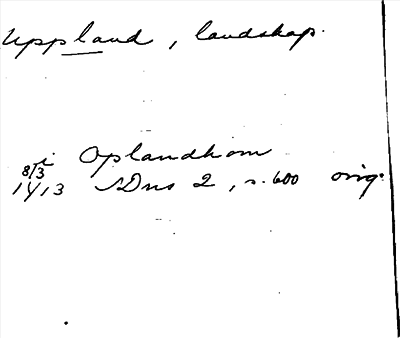 Uppland, landskap.
i Oplandhom
8/3
1413 SDns 2, s. 600 orig.